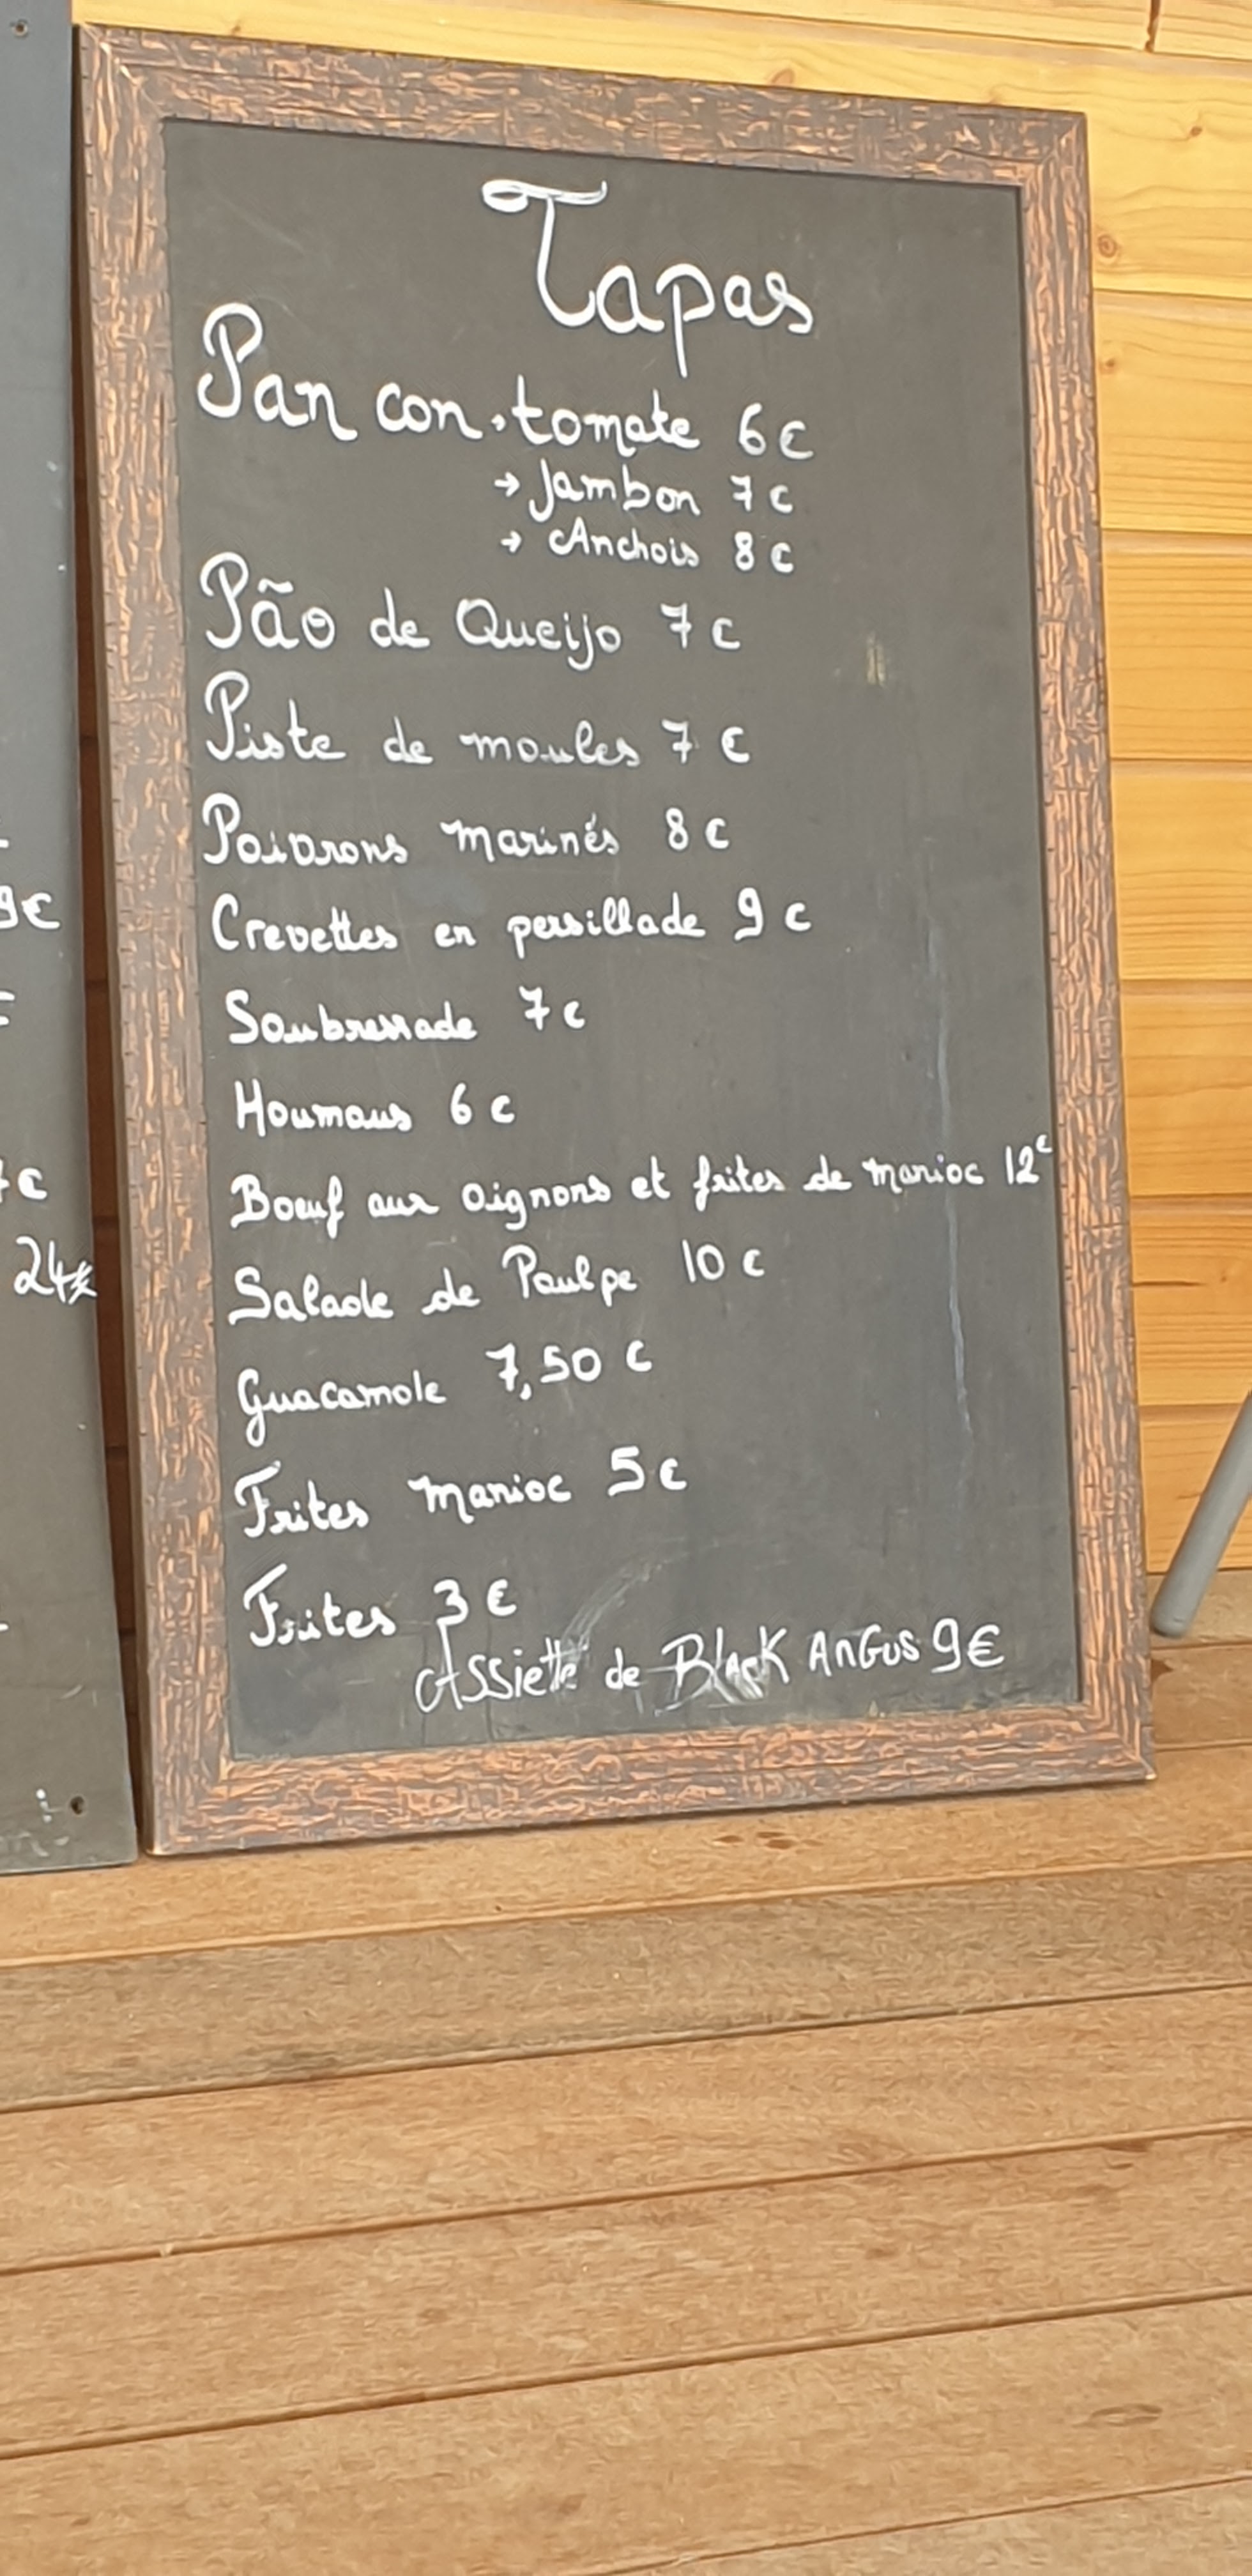 Tapas
Pan con → tomate 6€
→ Jambon 7€
→ Anchois 8€
Pão de Queijo 7€
Piste de moules 7€
Poivrons marinés 8€
Crevettes en persillade 9€
Soubressade 7€
Houmous 6€
Boeuf aux oignons et frites de manioc 12€
Salade de Poulpe 10€
Guacamole 7,50€
Frites manioc 5€
Frites 3€
Assiette de Black Angus 9€
9€
€
24